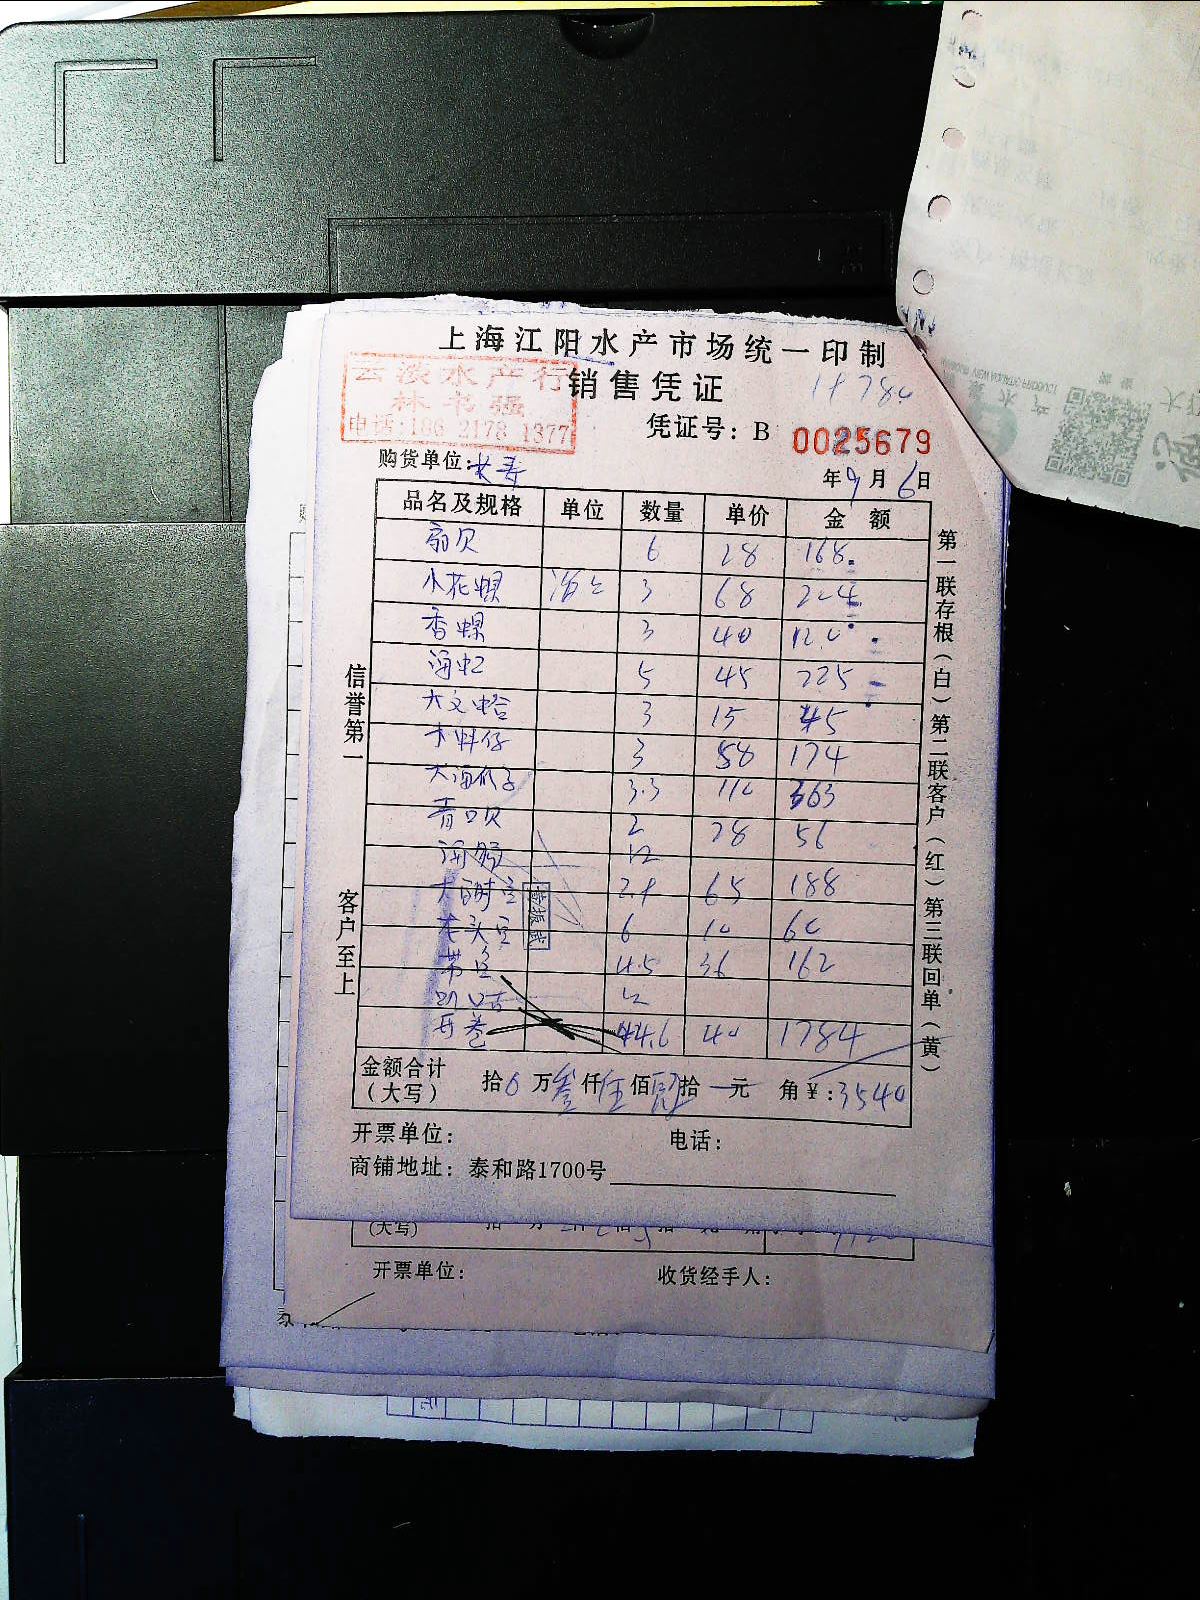 上海江阳水产市场统一印制
云波水产行
林书强
电话:186 2178 1377
销售凭证
凭证号: B 0025679
购货单位:长寿
年9月6日
品名及规格 单位 数量 单价 金额
扇贝 6 28 168
小花螺 3 68 204
香螺 3 40 120
海虹 5 45 225
大文蛤 3 15 45
3 58 174
大海瓜子 3.3 110 363
青口贝 2 28 56
海肠 12
2.9 65 188
老头鱼 6 10 60
带鱼 4.5 36 162
12
44.6 40 1784
信誉第一
客户至上
第一联存根(白)第二联客户(红)第三联回单(黄)
金额合计(大写) 拾 0 万 叁 仟 伍 佰 拾 元 角 ¥:3540
开票单位: 电话:
商铺地址: 泰和路1700号
(大写)
开票单位: 收货经手人: